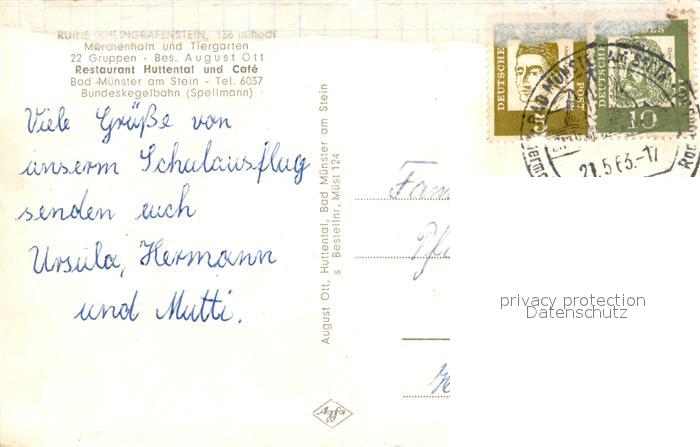 RUINE RHEINGRAFENSTEIN, 136 m hoch
Märchenhain und Tiergarten
22 Gruppen - Bes. August Ott
Restaurant Huttental und Café
Bad Münster am Stein - Tel. 6037
Bundeskegelbahn (Spellmann)
Viele Grüße von
unserm Schulausflug
senden euch
Ursula, Hermann
und Mutti.
August Ott, Huttental, Bad Münster am Stein
s Bestellnr. Müst 124
Agfa
Fam
DEUTSCHE
POST
DEUTSCHE
10
BAD MÜNSTER AM STEIN
21.5.63.-17
privacy protection
Datenschutz